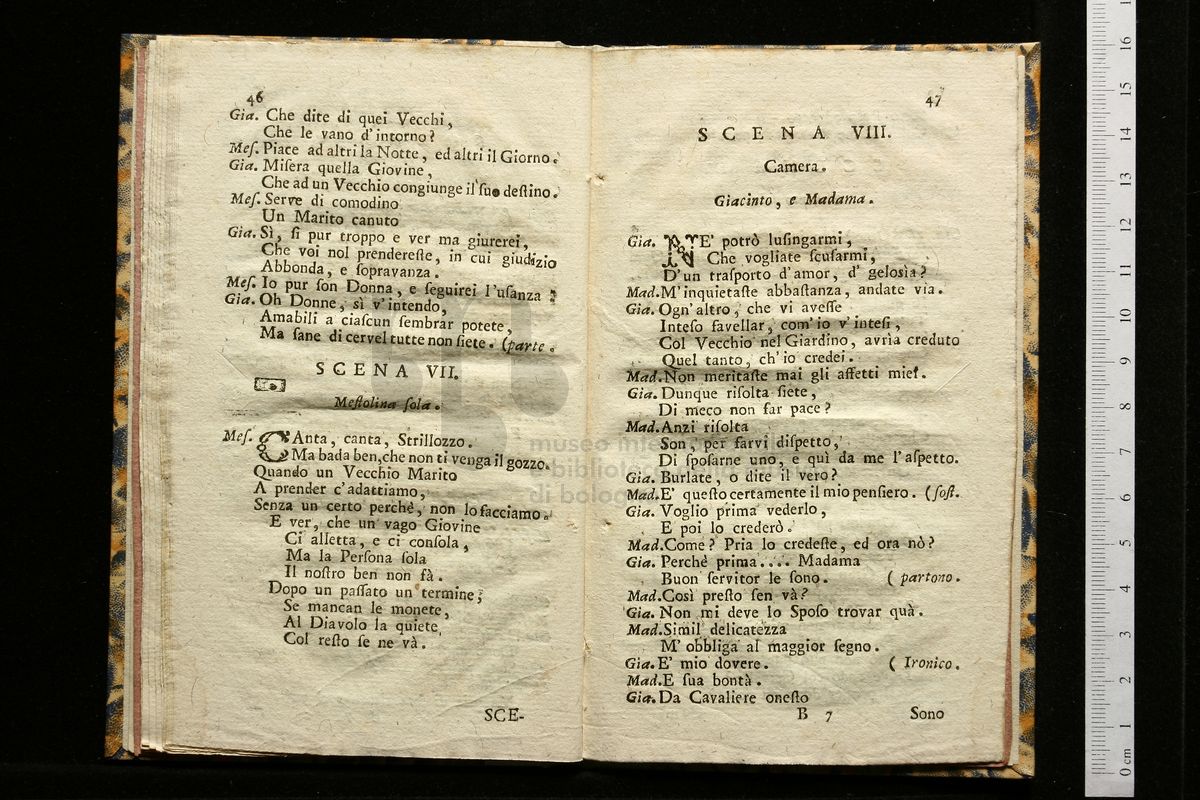 46
Gia. Che dite di quei Vecchi,
Che le vano d'intorno?
Meſ. Piace ad altri la Notte, ed altri il Giorno.
Gia. Miſera quella Giovine,
Che ad un Vecchio congiunge il ſuo deſtino.
Meſ. Serve di comodino
Un Marito canuto
Gia. Sì, ſi pur troppo e ver ma giurerei,
Che voi nol prendereſte, in cui giudizio
Abbonda, e ſopravanza.
Meſ. Io pur ſon Donna, e ſeguirei l'uſanza
Gia. Oh Donne, sì v'intendo,
Amabili a ciaſcun ſembrar potete,
Ma ſane di cervel tutte non ſiete. (parte.
SCENA VII.
Meſtolina ſola.
Meſ. CAnta, canta, Strillozzo.
Ma bada ben, che non ti venga il gozzo.
Quando un Vecchio Marito
A prender c'adattiamo,
Senza un certo perchè, non lo facciamo.
E ver, che un vago Giovine
Ci aſſetta, e ci conſola,
Ma la Perſona ſola
Il noſtro ben non fà.
Dopo un paſſato un termine,
Se mancan le monete,
Al Diavolo la quiete
Col reſto ſe ne và.
SCE-
47
SCENA VIII.
Camera.
Giacinto, e Madama.
Gia. NE' potrò luſingarmi,
Che vogliate ſcuſarmi,
D'un traſporto d'amor, d'geloſìa?
Mad. M'inquietaſte abbaſtanza, andate via.
Gia. Ogn'altro, che vi aveſſe
Inteſo favellar, com'io v'inteſi,
Col Vecchio nel Giardino, avrìa creduto
Quel tanto, ch'io credei.
Mad. Non meritaſte mai gli affetti miei.
Gia. Dunque riſolta ſiete,
Di meco non far pace?
Mad. Anzi riſolta
Son, per farvi diſpetto,
Di ſpoſarne uno, e quì da me l'aſpetto.
Gia. Burlate, o dite il vero?
Mad. E' queſto certamente il mio penſiero. (ſoſt.
Gia. Voglio prima vederlo,
E poi lo crederò.
Mad. Come? Pria lo credeſte, ed ora nò?
Gia. Perchè prima.... Madama
Buon ſervitor le ſono. (partono.
Mad. Così preſto ſen và?
Gia. Non mi deve lo Spoſo trovar quà.
Mad. Simil delicatezza
M'obbliga al maggior ſegno.
Gia. E' mio dovere. (Ironico.
Mad. E ſua bontà.
Gia. Da Cavaliere oneſto
B 7 Sono
museo
biblioteca
di bologna
0 cm 1 2 3 4 5 6 7 8 9 10 11 12 13 14 15 16